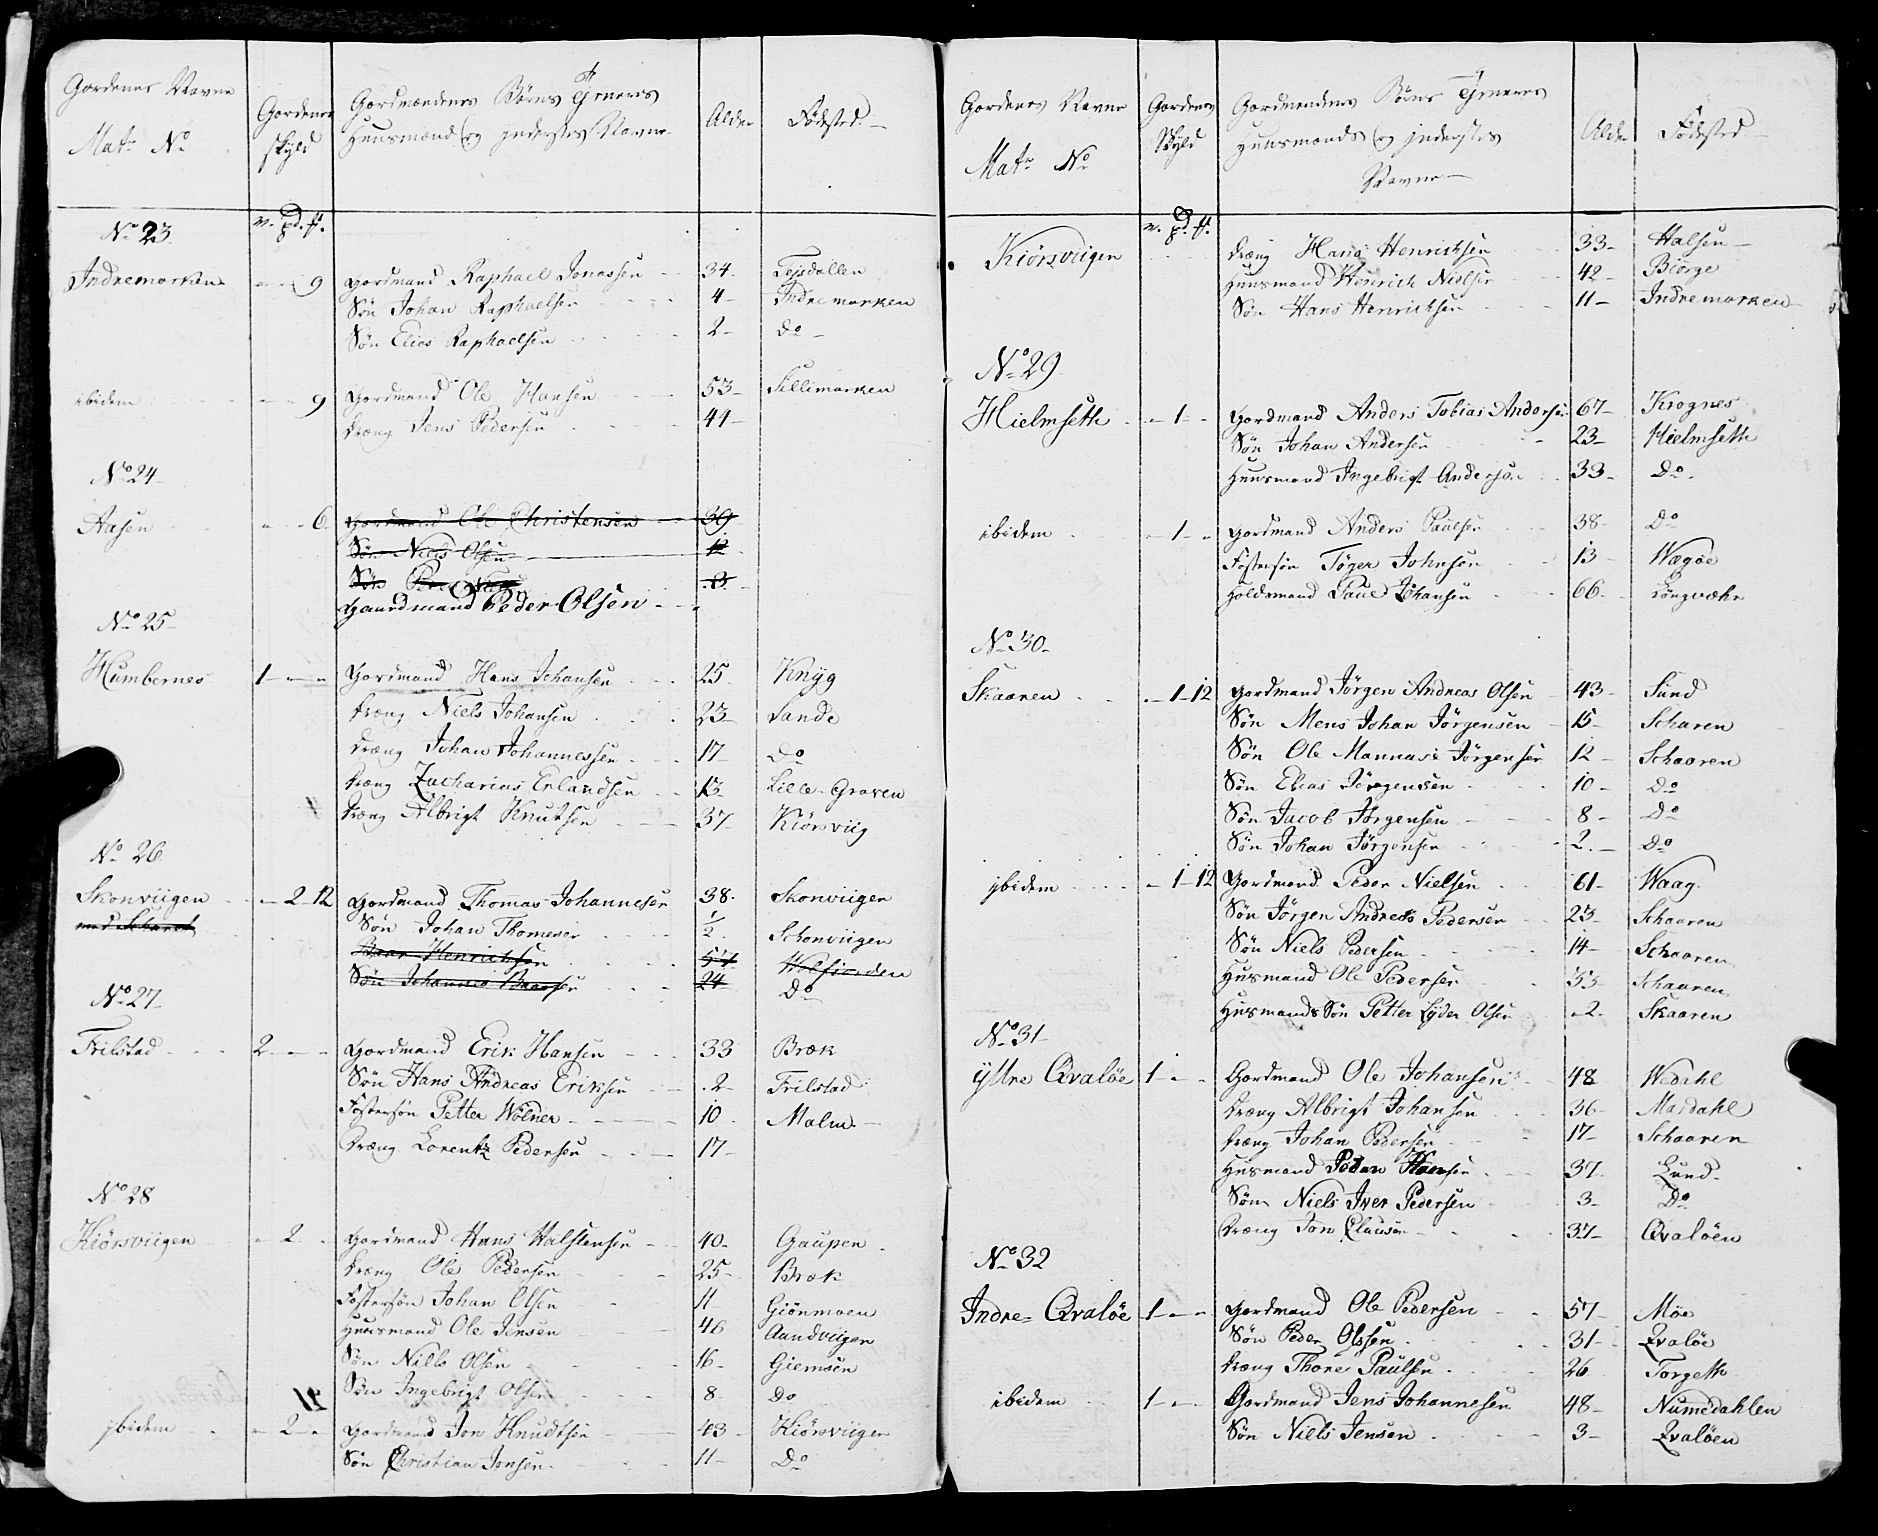 Gordenes Navne
Matr No
Gordenes
skyld
Gordmændenes Børns Tieneres
Huusmænd og inderstes Navne
Alder
Fødsted
v. pd. ft.
No 23
Indremarken 9 Gordmand Raphael Jonassen 34 Tejsdallen
Søn Johan Raphaelsen 4 Indremarken
Søn Elias Raphaelsen 2 Do
ibidem 9 Gordmand Ole Hansen 53 Lillemarken
Dræng Jens Pedersen 41
No 24
Aasen 6 Gordmand Ole Christensen 39
Søn Niels Olsen 12
Søn
Gaardmand Peder Olsen
No 25
Humbernes 1 Gordmand Hans Johansen 25 Knÿg
Dræng Niels Johansen 23 Sande
Dræng Johan Johannessen 17 Do
Dræng Zacharias Erlandsen 13 Lille-Graven
Dræng Albrigt Knutsen 37 Kiörsviig
No 26
Skonviigen 2 12 Gordmand Thomas Johannesen 38 Skonviigen
Søn Johan Thomesen 1/2 Schonviigen
Henrichsen
Søn Johannes 24 Do
No 27
Frilstad 2 Gordmand Erik Hansen 33 Bræk
Søn Hans Andreas Eriksen 2 Frilstad
Fostersøn Petter Wolner 10 Malm
Dræng Lorentz Pedersen 17
No 28
Kiörsviigen 2 Gordmand Hans Halstensen 40 Gaupen
Dræng Ole Pedersen 25 Bræk
Fostersøn Johan Olsen 11 Giönmoen
Huusmand Ole Jensen 46 Aandviigen
Søn Nills Olsen 16 Giemsen
Søn Ingebrigt Olsen 8 Do
jbidem 2 Gordmand Jon Knudtsen 43 Kiörsviigen
Søn Christian Jonsen 11 Do
Gordenes Navne
Matr No
Gordenes
Skyld
Gordmændenes Børns Tieneres
Huusmænds og inderstes
Navne
Alder
Fødsted
v. pd. ft.
Kiörsviigen Dræng Hans Henrichsen 33 Halsen
Huusmand Henrich Nielsen 42 Biörge
Søn Hans Henrichsen 11 Indremarken
No 29
Hielmseth 1 Gordmand Anders Tobias Andersen 67 Krognes
Søn Johan Andersen 23 Hielmseth
Huusmand Ingebrigt Andersen 33 Do
ibidem 1 Gordmand Anders Paulsen 38 Do
Fostersøn Töger Johnsen 13 Wægöe
Holdsmand Paul Johansen 66 Longvæhr
No 30
Skaaren 1 12 Gordmand Jörgen Andreas Olsen 43 Sund
Søn Mens Johan Jörgensen 15 Scharen
Søn Ole Mannase Jörgensen 12 Schaaren
Søn Elias Jörgensen 10 Do
Søn Jacob Jörgensen 8 Do
Søn Johan Jörgensen 2 Do
jbidem 1 12 Gordmand Peder Nielsen 61 Waag
Søn Jörgen Andreas Pedersen 23 Schaaren
Søn Niels Pedersen 14 Schaaren
Husmand Ole Pedersen 33 Schaaren
Husmands Søn Petter Lyder Olsen 2 Skaaren
No 31
ÿttre Qvalöe 1 Gordmand Ole Johansen 48 Wedahl
Dræng Albrigt Johansen 36 Mardahl
Dræng Johan Pedersen 17 Schaaren
Husmand Peder Hansen 37 Lund
Søn Niels Iver Pedersen 3 Do
Dræng Jon Clausen 37 Qvalöen
No 32
Indre Qvalöe 1 Gordmand Ole Pedersen 57 Möe
Søn Peder Olssen 31 Qvalöe
Dræng Thore Paulsen 26 Torgeth
ibidem 1 Gordmand Jens Johannesen 48 Numedahlen
Søn Niels Jensen 3 Qvalöen